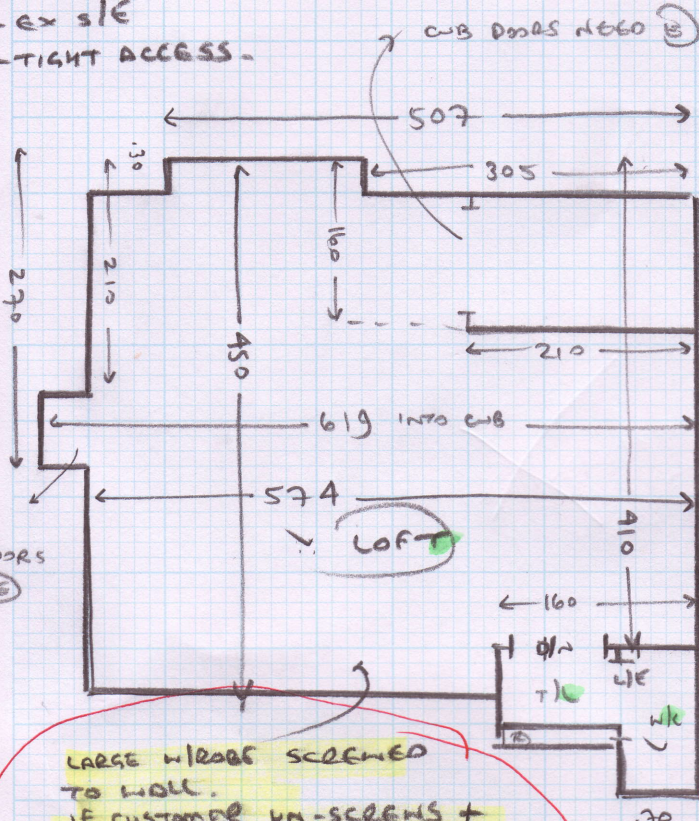 - EX S/E
- TIGHT ACCESS.
CUB DOORS NEED E
507
.30
305
270
210
160
450
210
619 INTO CUB
574
LOFT
410
160
D/N
L/E
T/L
LARGE W/ROBE SCREWED
TO WALL.
IF CUSTOMER UN-SCREWS +